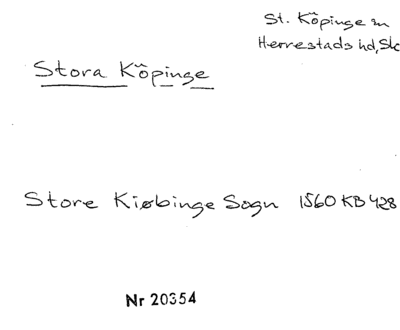 St. Köpinge sn
Herrestads hd, Sk
Stora Köpinge
Store Kiøbinge Sogn 1560 KB 428
Nr 20354